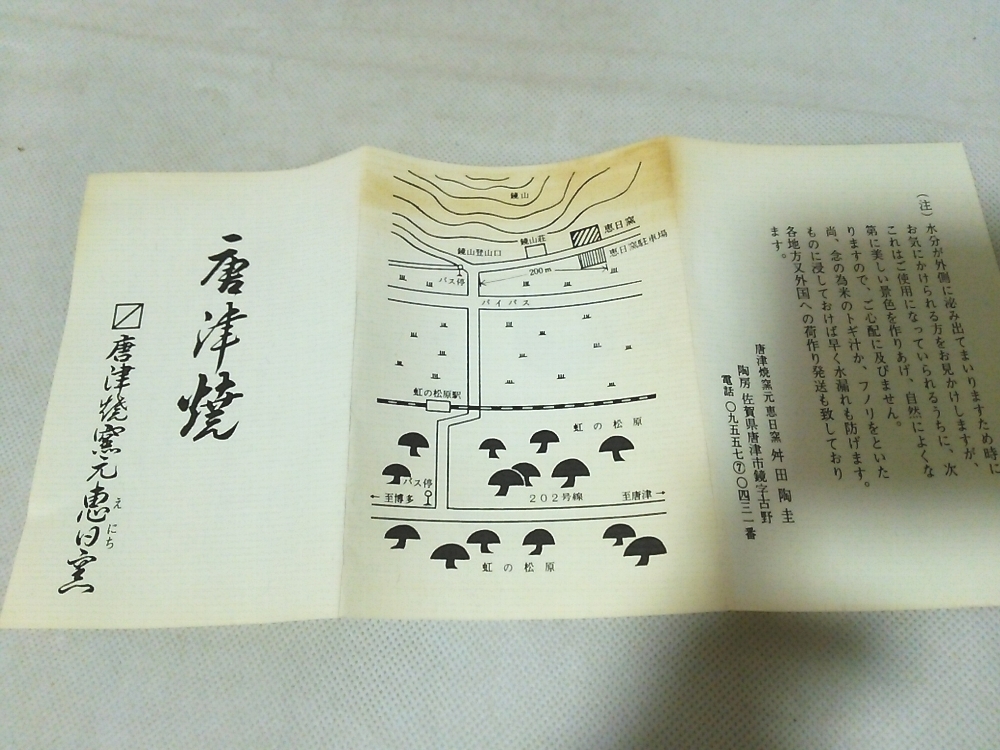 唐津焼
唐津焼窯元恵日窯
えにち
鏡山
恵日窯
鏡山荘
恵日窯駐車場
鏡山登山口
200m
バス停
バイパス
虹の松原駅
虹の松原
バス停
←至博多
202号線
至唐津→
虹の松原
(注)
水分が外側に泌み出てまいりますため時に
お気にかけられる方をお見かけしますが、
これはご使用になっていられるうちに、次
第に美しい景色を作りあげ、自然によくな
りますので、ご心配に及びません。
尚、念の為米のトギ汁か、フノリをといた
ものに浸しておけば早く水漏れも防げます。
各地方又外国への荷作り発送も致しており
ます。
唐津焼窯元 恵日窯 舛田陶圭
陶房 佐賀県唐津市鏡字古野
電話 〇九五五七⑦〇四三一番